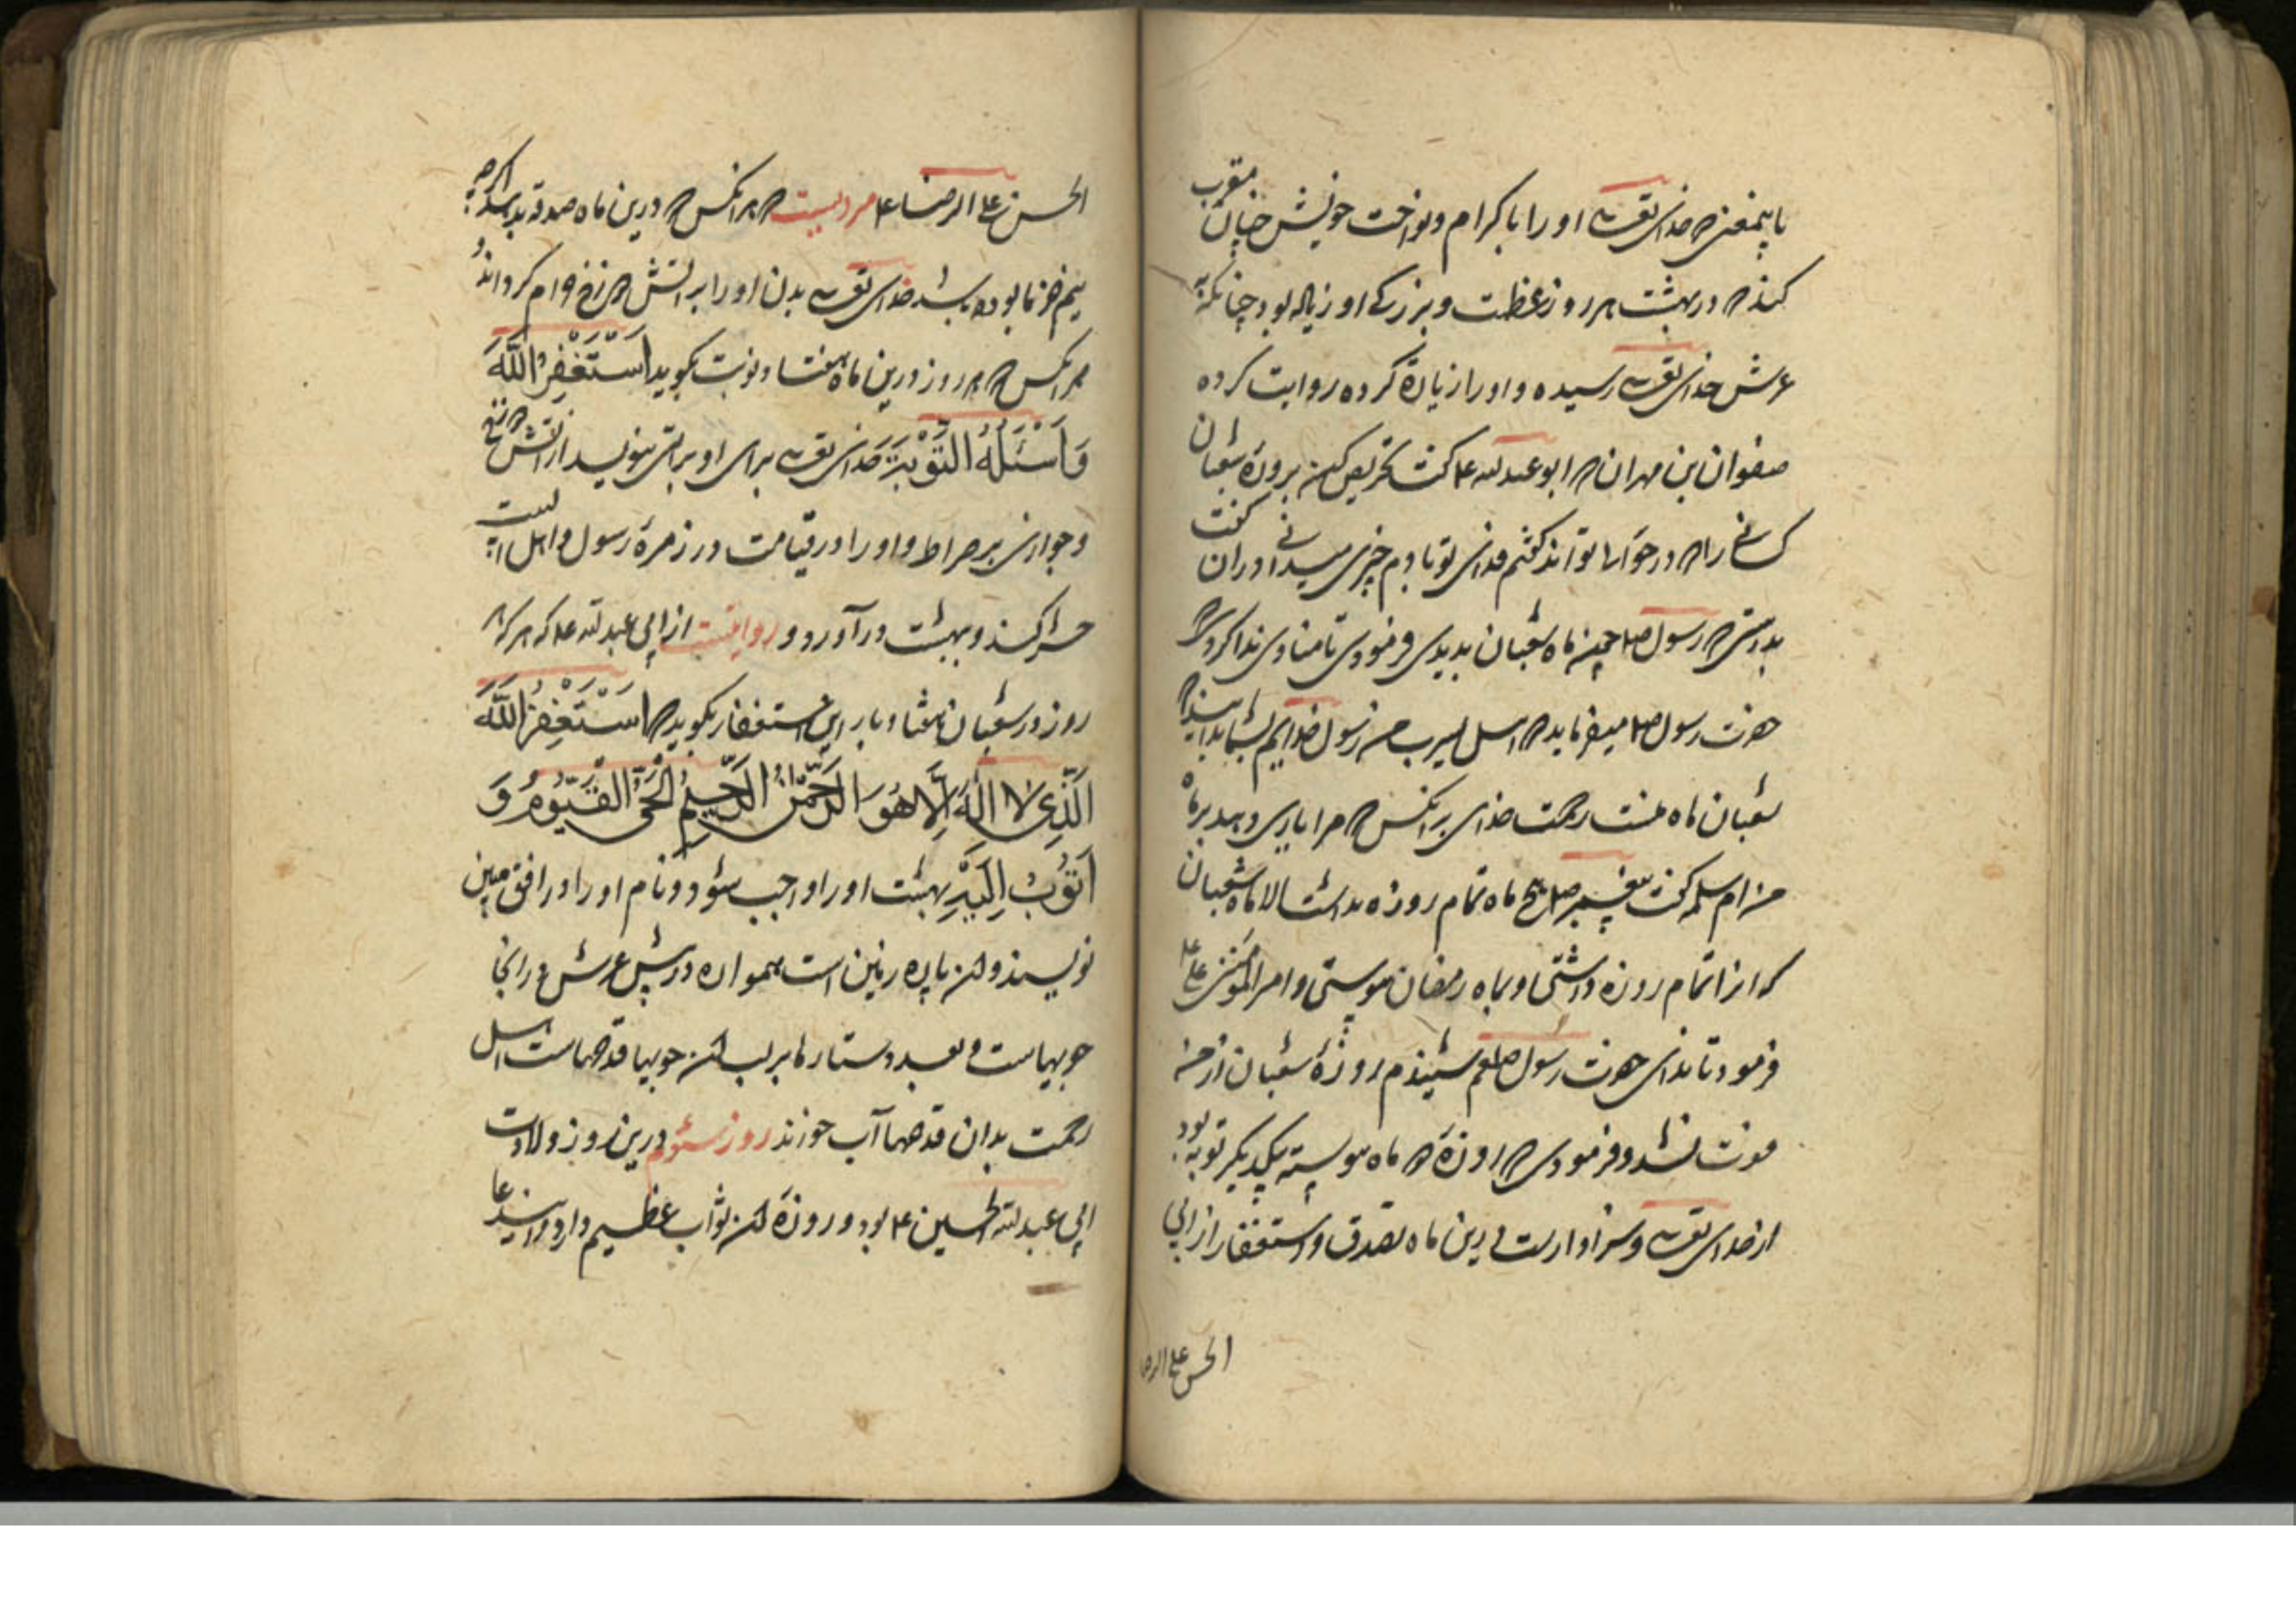 باینمعنی که خدای تعالی او را باکرام و نواخت خویش چنان مقرب
کند که در بهشت هر روز عظمت و بزرگی او زیاده بود چنانکه به
عرش خدای تعالی رسیده و او را زیارة کرده روایت کرده
صفوان بن مهران که ابو عبدالله ع گفت تحریص کن بروزه شعبان
کسانی را که در حوالی تواند گفتم فدای تو بادم چیزی میدانی در ان گفت
بدرستی که رسول صلعم چون ماه شعبان بدیدی فرمودی تا منادی ندا کردی که
حضرت رسول صلعم میفرماید که اهل یثرب من رسول خدایم بشما بدانید که
شعبان ماه منست رحمت خدای بر انکس که مرا یاری دهد بر ماه
من ام سلمه گفت پیغمبر صلعم هیچ ماه تمام روزه نداشت الا ماه شعبان
که انرا تمام روزه داشتی و بماه رمضان پیوستی و امیر المؤمنین علی ع
فرمود تا ندای حضرت رسول صلعم شنیدم روزهٔ شعبان از من
فوت نشد و فرمودی که روزهٔ دو ماه پیوسته بیکدیگر توبه بود
از خدای تعالی و سزاوارست درین ماه تصدق و استغفار از ابی
الحسن علی الرضا
الحسن علی الرضا ع مرویست که هر انکس که درین ماه صدقه بدهد اگر چه
نیم خرما بوده باشد خدای تعالی بدن او را بر آتش دوزخ حرام گرداند و
هر انکس که هر روز درین ماه هفتاد نوبت بگوید اَسْتَغْفِرُ اللَّهَ
وَاَسْئَلُهُ التَّوْبَةَ خدای تعالی برای او براتی بنویسد از آتش دوزخ
و جوازی بر صراط و او را در قیامت در زمرهٔ رسول و اهل البیت
حشر کند و ببهشت در آورد و روایتست از ابی عبدالله ع که هر که هر
روز در شعبان هفتاد بار این استغفار بگوید که اَسْتَغْفِرُ اللَّهَ
الَّذِی لا اِلَهَ اِلَّا هُوَ الرَّحْمٰنُ الرَّحِیمُ الْحَیُّ الْقَیُّومُ وَ
اَتُوبُ اِلَیْهِ بهشت او را واجب شود و نام او را در افق مبین
نویسند و ان پاره زمین است هموار در پیش عرش و در انجا
جویهاست و بعدد ستارها بر لب ان جویها قدحهاست اهل
رحمت بدان قدحها آب خورند روز سیوم درین روز ولادت
ابی عبدالله الحسین ع بود و روزهٔ ان ثواب عظیم دارد و این دعا